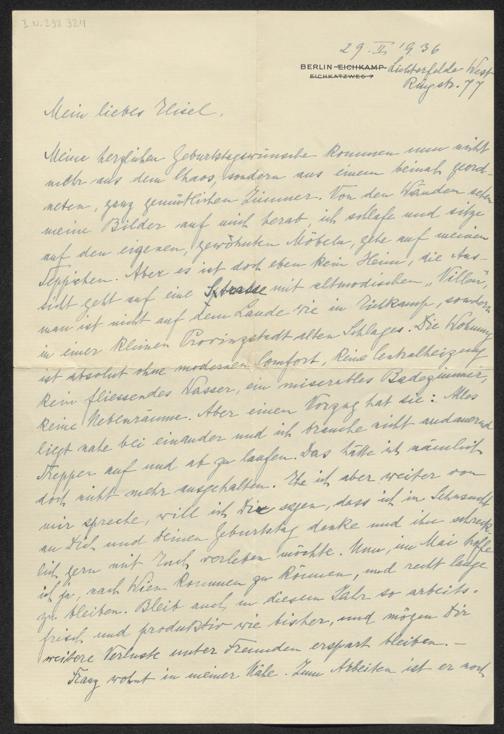 I.N. 238 324
29. II. 1936
BERLIN-EICHKAMP Lichterfelde West
EICHKATZWEG 7 Ringstr. 77
Mein liebes Hisel,
Meine herzlichen Geburtstagswünsche kommen nun nicht
mehr aus dem Chaos, sondern aus einem beinah geord-
neten, ganz gemütlichen Zimmer. Von den Wänden sehen
meine Bilder auf mich herab, ich schlafe und sitze
auf den eigenen, gewohnten Möbeln, gehe auf meinen
Teppichen. Aber es ist doch eben kein Heim, die Aus-
sicht geht auf eine Strasse mit altmodischen „Villen",
man ist nicht auf dem Lande wie in Eichkamp, sondern
in einer kleinen Provinzstadt alten Schlages. Die Wohnung
ist absolut ohne modernen Comfort, keine Centralheizung
kein fliessendes Wasser, ein miserables Badezimmer,
keine Nebenräume. Aber einen Vorzug hat sie: Alles
liegt nahe bei einander und ich brauche nicht andauernd
Treppen auf und ab zu laufen. Das hätte ich nämlich
doch nicht mehr ausgehalten. Ehe ich aber weiter von
mir spreche, will ich Dir sagen, dass ich in Sehnsucht
an Dich und Deinen Geburtstag denke und ihn schreck
lich gern mit Euch verleben möchte. Nun, im Mai hoffe
ich ja, nach Wien kommen zu können, und recht lange
zu bleiben. Bleib auch in diesem Jahr so arbeits-
frisch und produktiv wie bisher, und mögen Dir
weitere Verluste unter Freunden erspart bleiben. –
Franz wohnt in meiner Nähe. Zum Arbeiten ist er noch